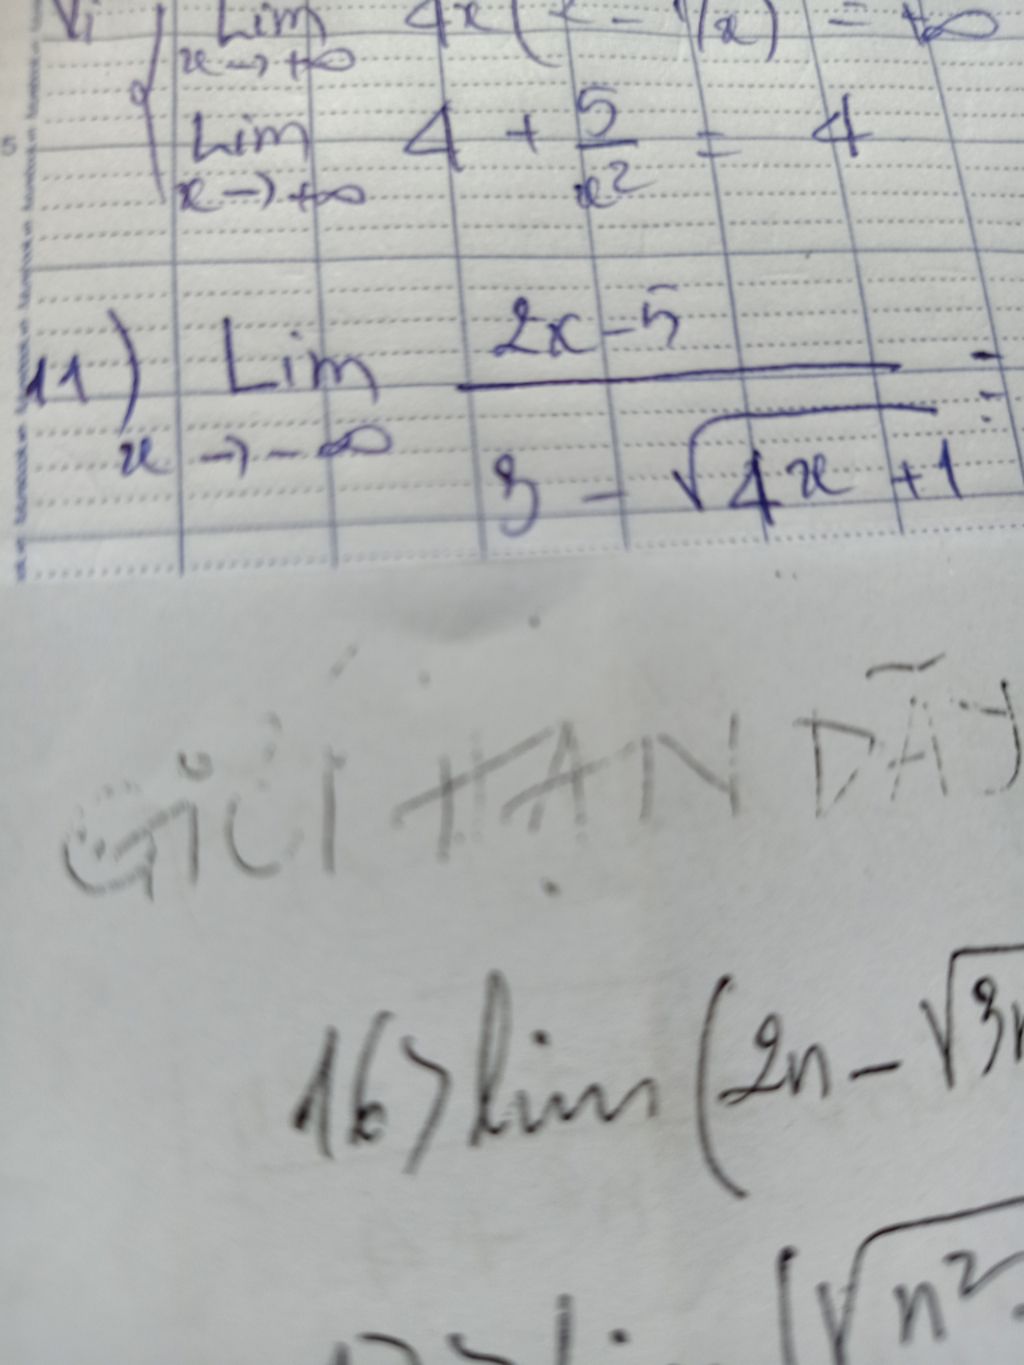 Vì Lim 4x( - 1/x) = +∞
x → +∞
Lim 4 + 5/x² = 4
x → +∞
11) Lim (2x - 5)/(3 - √(4x + 1)) =
x → -∞
GIỚI HẠN DÃY
16) lim (2n - √3n
lim (√n²